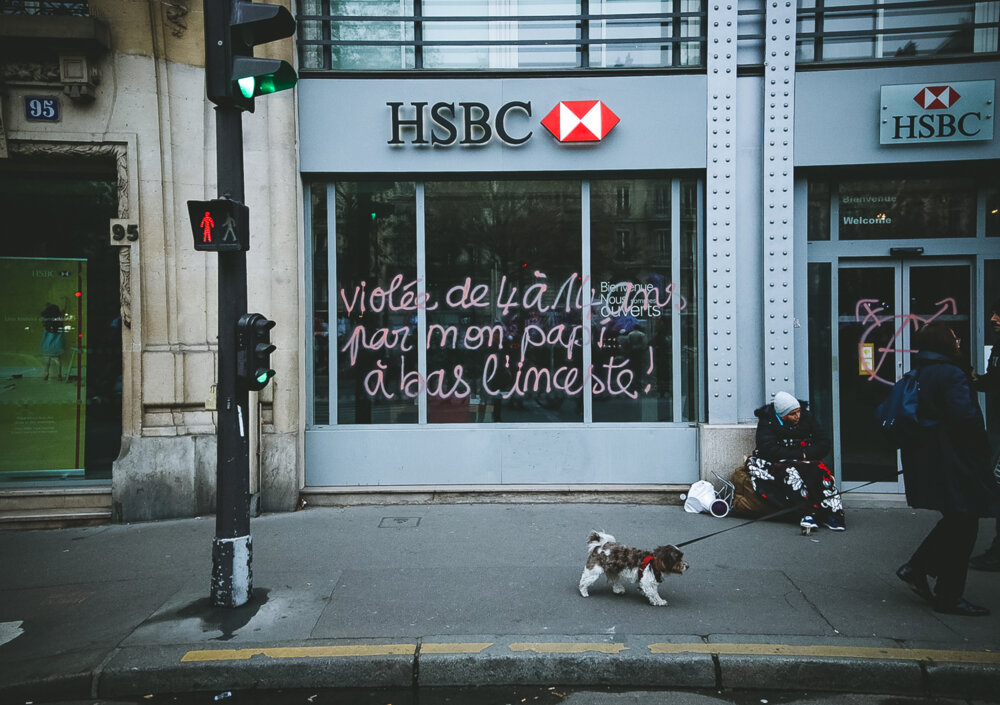 HSBC
HSBC
95
95
HSBC
Bienvenue
Welcome
Bienvenue
Nous sommes
ouverts
violée de 4 à 14 ans
par mon papi...
à bas l'inceste !